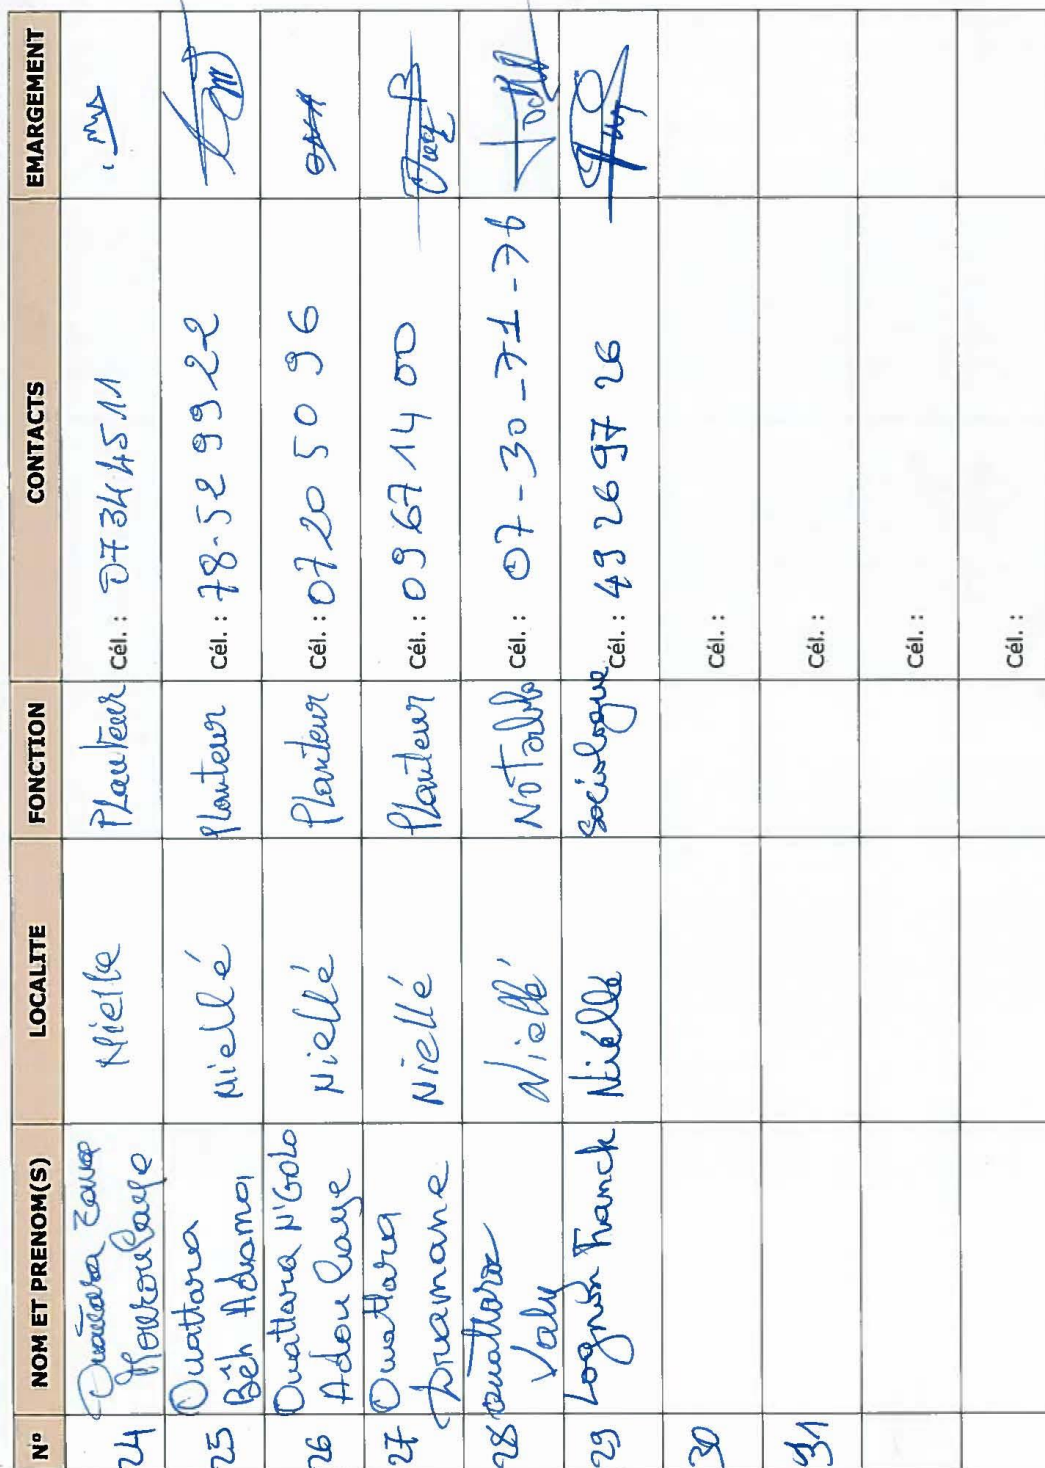 N° NOM ET PRENOM(S) LOCALITE FONCTION CONTACTS EMARGEMENT
24 Ouattara Zana Niellé Planteur Cél. : 07 34 45 11
25 Ouattara Bêh Adama Niellé Planteur Cél. : 78-52 99 22
26 Ouattara N'Golo Adoulaye Niellé Planteur Cél. : 07 20 50 96
27 Ouattara Dramane Niellé Planteur Cél. : 09 67 14 00
28 Ouattara Valy Niellé Notable Cél. : 07-30-71-76
29 Lognon Franck Niellé Sociologue Cél. : 49 26 97 26
30 Cél. :
31 Cél. :
Cél. :
Cél. :